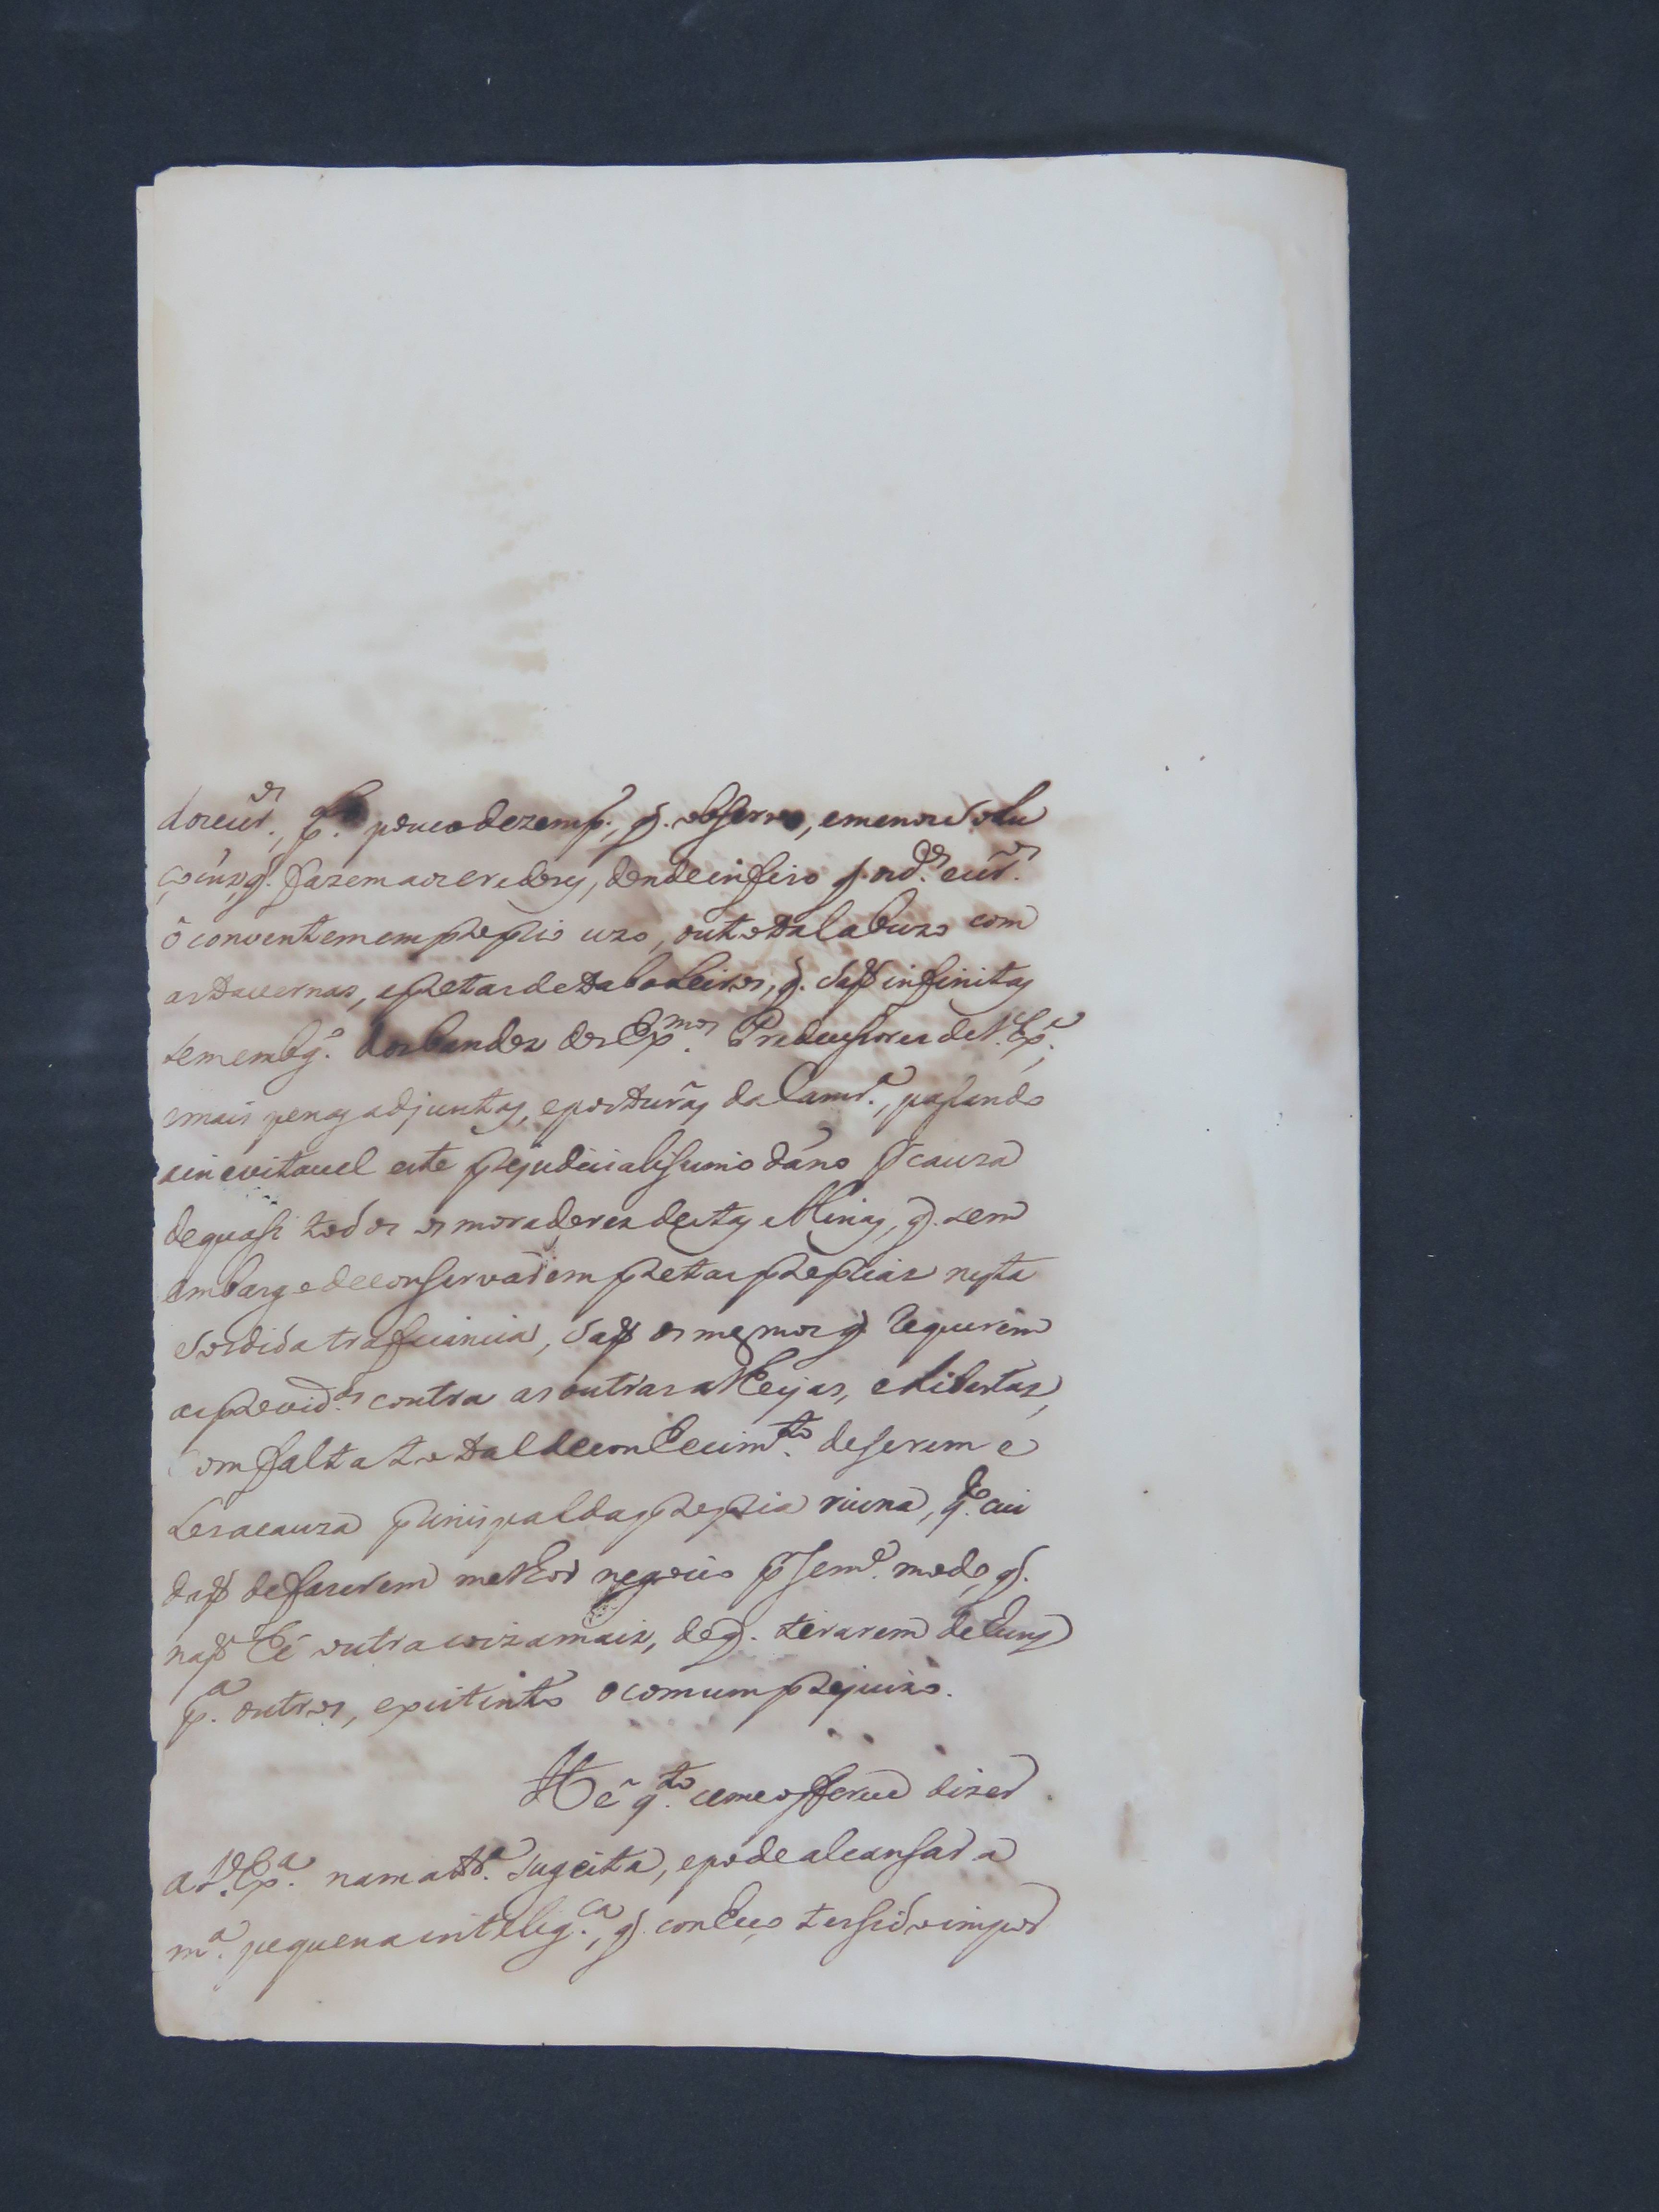 dores, p.lo pouco dezemp.o, q. observo, e menos solu
çoins, q. fazem aos eredores, donde infiro q. os d.os
o conventem em proprio uzo, ou total abuzo com
as Tavernas, e pretas de Taboleiros, q. saõ infinitas
sem emb.go dos bandos dos Ex.mos Predecessores de V. Ex.ª,
e mais penas adjuntas, e posturas da Camr.ª, pasando
a inevitavel este prejudicialissimo dano p.r cauza
de quasi todos os moradores destas Minas, q. sem
embargo de conservarem pretas proprias nesta
sordida traficancia, saõ os mesmos q. requerem
as provid.as contra as outras alheyas, e Libertas,
Com falta total de conhecim.to de serem e
les a cauza prinispal da propria ruina, q.do cui
daõ de fazerem melhor negocio p.r sem.e modo, q.
naõ hé outra coiza mais, de q. terarem de huns
p.ª outros, extinto o comum prejuizo.
He q.to se me offerece dizer
a V. Ex.ª na mat.ª sugeita, e pode alcansar a
m.ª pequena intelig.ca, q. conheço ter sido impor